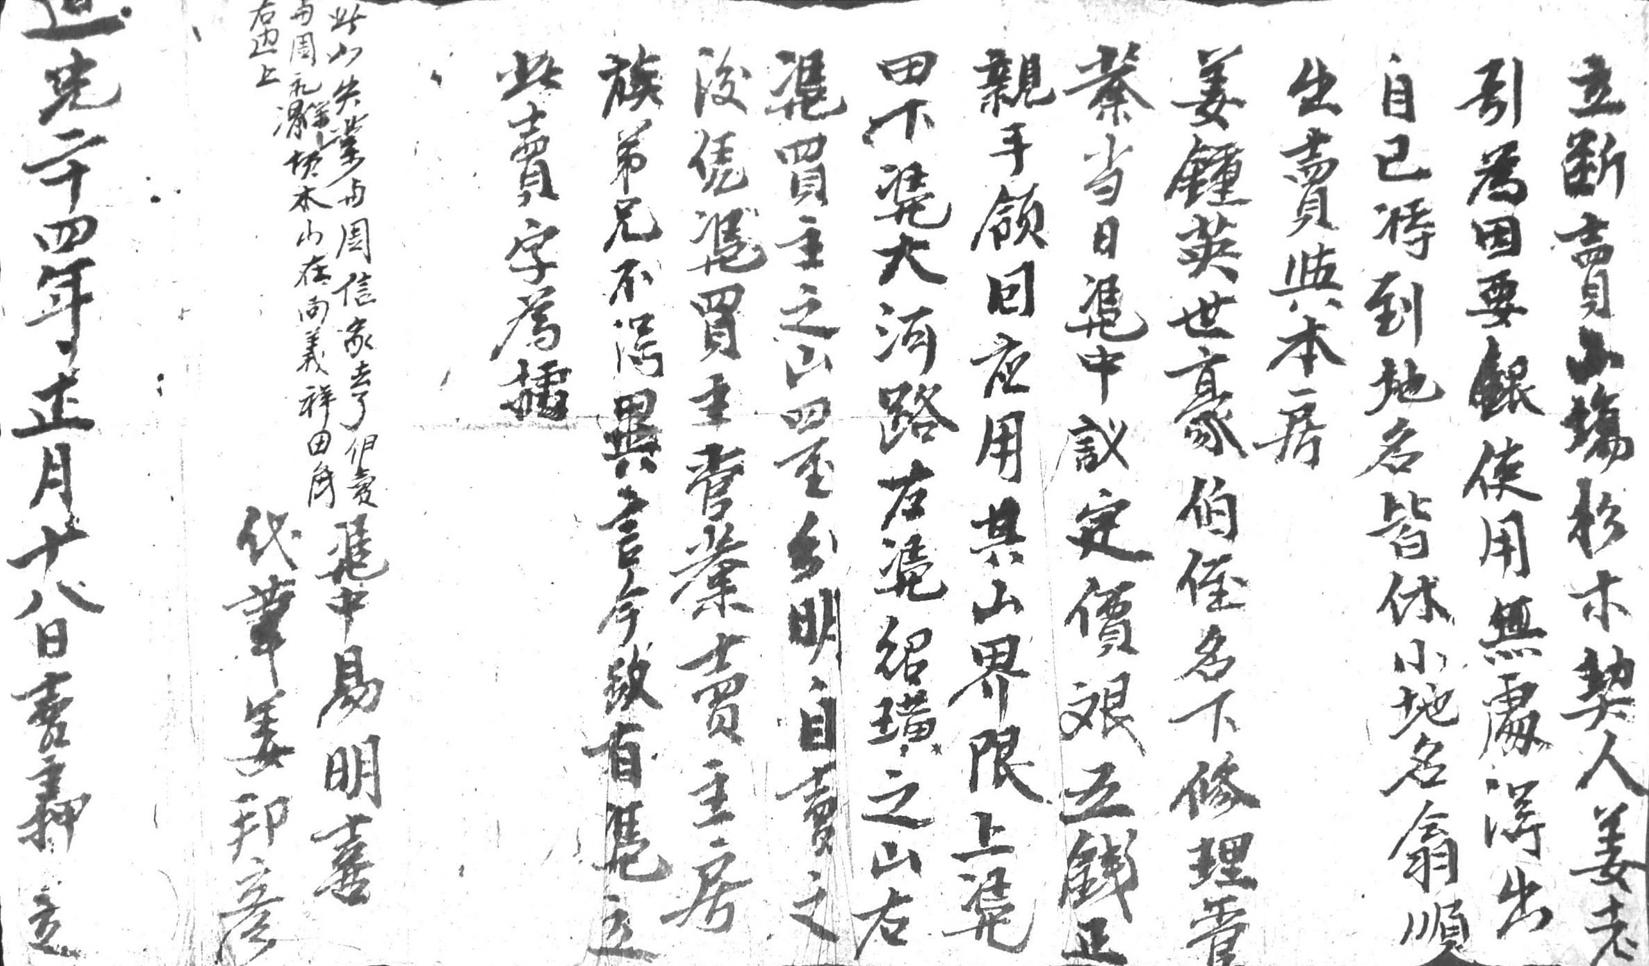 立斷賣山塲杉木契人姜老
引為因要銀使用無處淂出
自己淂到地名皆休小地名翁順
出賣與本房
姜鐘英世豪伯侄名下修理管
業当日凴中議定價艮五錢正
親手領回应用其山界限上凴
田下凴大河路左凴紹璜之山右
凴買主之山四至分明自賣之
後凭凴買主管業賣主房
族弟兄不淂異言今欲有凴立
此賣字為據
此山失業与周信家去了但賣
与周礼
木山在尚義祥田角
右边上
凴中易明喜
代筆姜邦彦
道光二十四年正月十八日 立